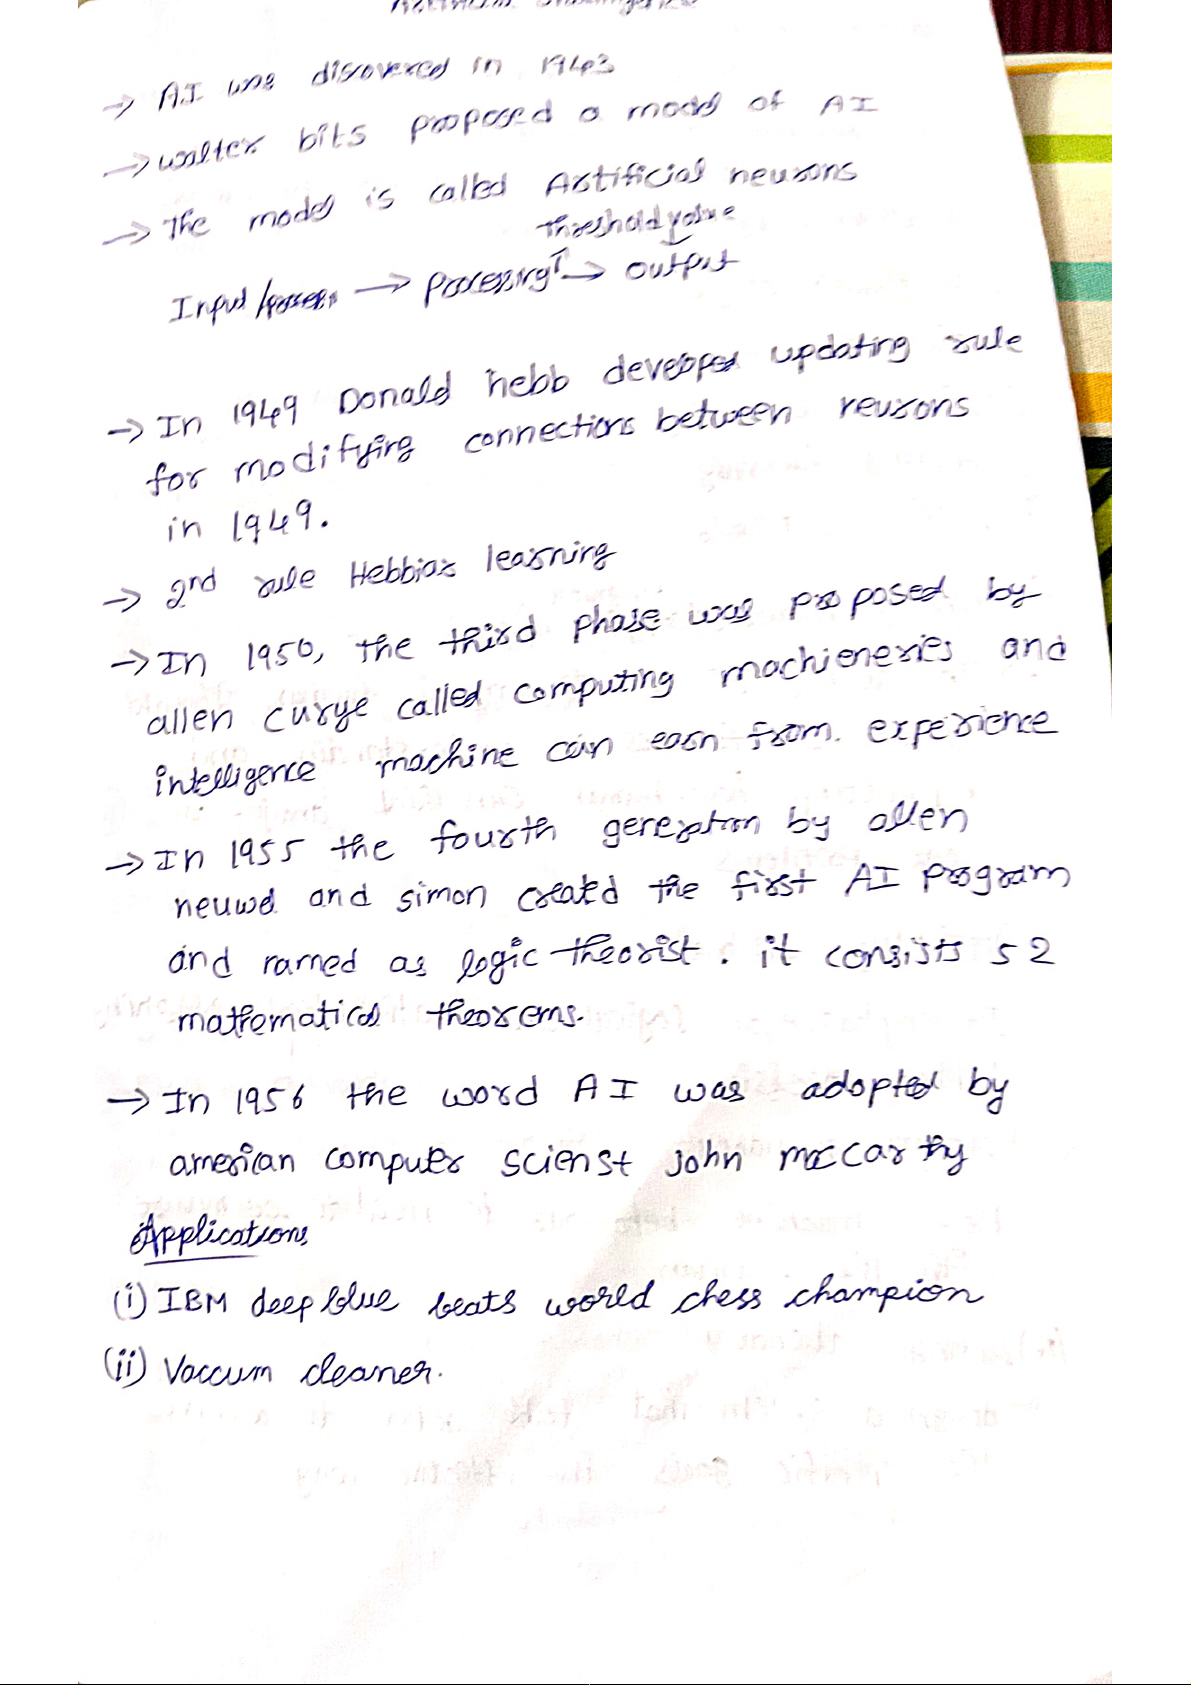 Artificial Intelligence
→ AI was discovered in 1943
→ walter bits proposed a model of AI
→ The model is called Artificial neurons
threshold value
Input → Processing → output
→ In 1949 Donald hebb developed updating rule
for modifying connections between neurons
in 1949.
→ 2nd rule Hebbian learning
→ In 1950, the third phase was proposed by
allen curye called computing machieneries and
intelligence machine can earn from experience
→ In 1955 the fourth generation by allen
neuwel and simon created the first AI program
and named as logic theorist. it consists 52
mathematical theorems.
→ In 1956 the word AI was adopted by
american computer scienst john mccarthy
Applications
(i) IBM deep blue beats world chess champion
(ii) Vaccum cleaner.